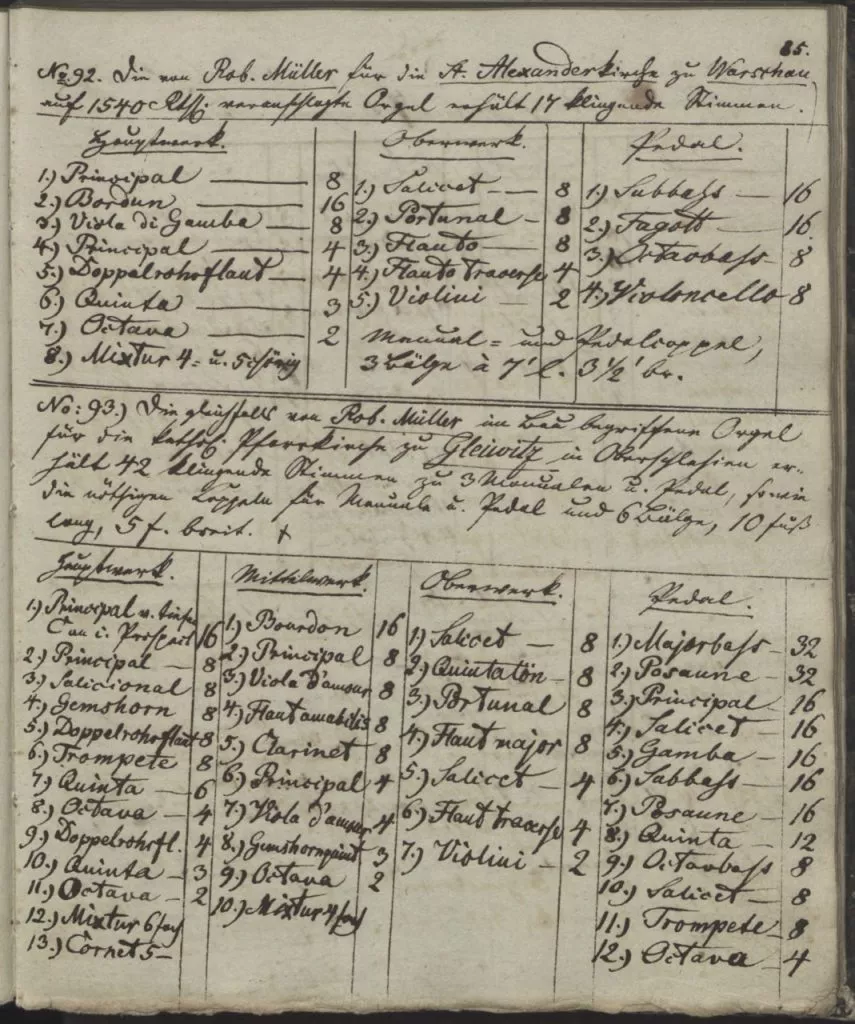 85.
No. 92. Die von Rob. Müller für die St. Alexanderkirche zu Warschau
auf 1540 Rtlr. veranschlagte Orgel erhält 17 klingende Stimmen.
Hauptwerk.
1.) Principal — 8
2.) Bordun — 16
3.) Viola di Gamba — 8
4.) Principal — 4
5.) Doppelrohrflaut — 4
6.) Quinta — 3
7.) Octava — 2
8.) Mixtur 4= u. 5chörig
Oberwerk.
1.) Salicet — 8
2.) Portunal — 8
3.) Flauto — 8
4.) Flauto traverse 4
5.) Violini — 2
Pedal.
1.) Subbass — 16
2.) Fagott — 16
3.) Octavbass — 8
4.) Violoncello 8
Manual= und Pedalcoppel,
3 Bälge à 7' l. 3 1/2' br.
No: 93.) Die gleichfalls von Rob. Müller im Bau begriffene Orgel
für die kathol. Pfarrkirche zu Gleiwitz in Oberschlesien er=
hält 42 klingende Stimmen zu 3 Manualen u. Pedal, sowie
die nöthigen Coppeln für Manuale u. Pedal und 6 Bälge, 10 fuß
lang, 5 f. breit. +
Hauptwerk.
1.) Principal v. tiefe
C an i. Prospect 16
2.) Principal — 8
3.) Salicional 8
4.) Gemshorn 8
5.) Doppelrohrflaut 8
6.) Trompete 8
7.) Quinta — 6
8.) Octava — 4
9.) Doppelrohrfl. 4
10.) Quinta — 3
11.) Octava — 2
12.) Mixtur 6fach
13.) Cornet 5 —
Mittelwerk.
1.) Bourdon 16
2.) Principal 8
3.) Viola d'amour 8
4.) Flaut amabilis 8
5.) Clarinet 8
6.) Principal 4
7.) Viola d'amour 4
8.) Gemshornquint 3
9.) Octava 2
10.) Mixtur 4fach
Oberwerk.
1.) Salicet — 8
2.) Quintatön — 8
3.) Portunal 8
4.) Flaut major 8
5.) Salicet — 4
6.) Flaut traverse 4
7.) Violini — 2
Pedal.
1.) Majorbass — 32
2.) Posaune — 32
3.) Principal — 16
4.) Salicet — 16
5.) Gamba — 16
6.) Subbass — 16
7.) Posaune — 16
8.) Quinta — 12
9.) Octavbass 8
10.) Salicet — 8
11.) Trompete — 8
12.) Octava — 4